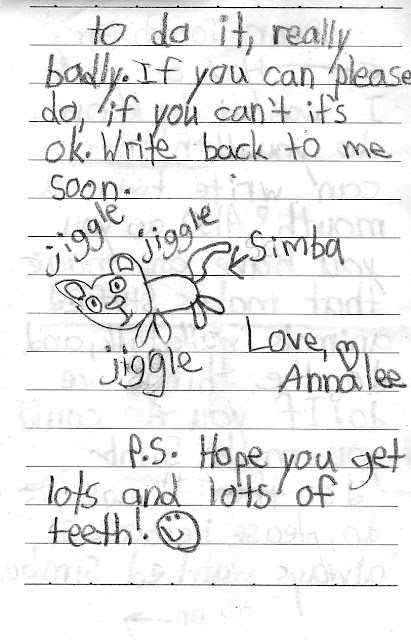 to do it, really
badly. If you can please
do, if you can't it's
ok. Write back to me
soon.
jiggle jiggle
Simba
jiggle
Love,
Annalee
P.S. Hope you get
lots and lots of
teeth!